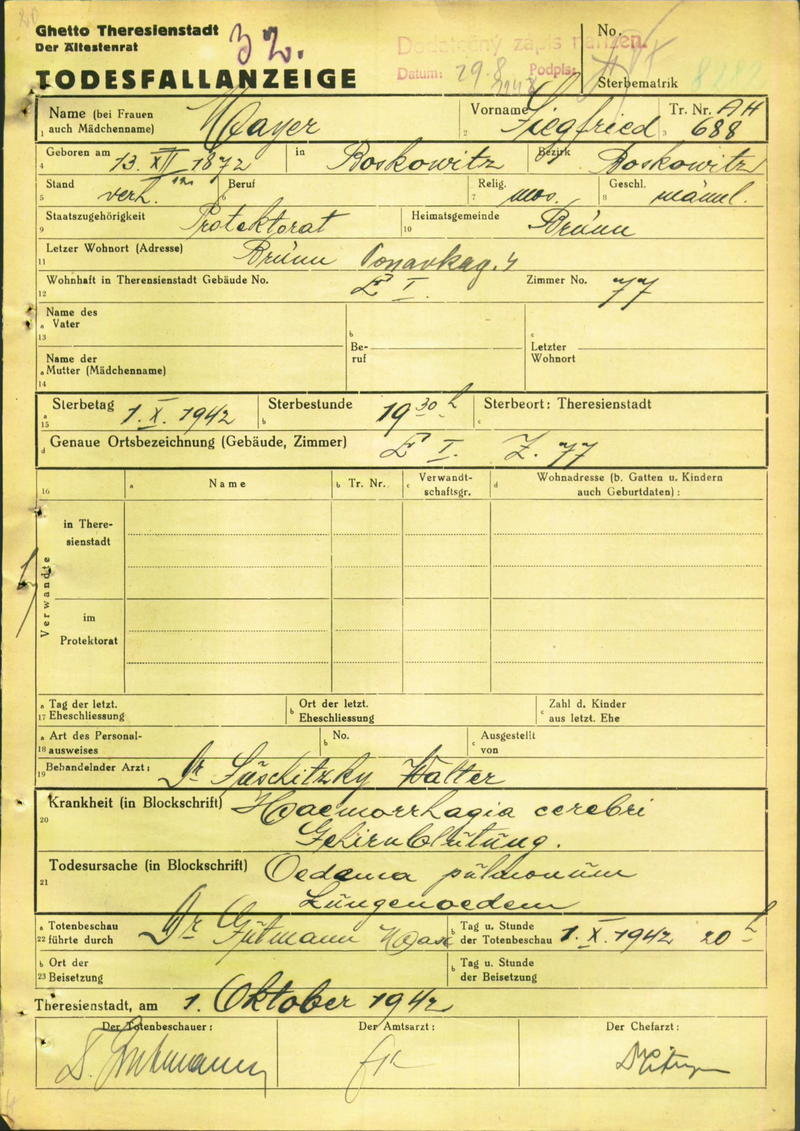 Ghetto Theresienstadt
Der Ältestenrat
32.
Dodatečný zápis nařízen.
Datum: 29.8. 1948 Podpis:
No.
Sterbematrik
TODESFALLANZEIGE
1 Name (bei Frauen auch Mädchenname) Mayer
2 Vorname Siegfried
3 Tr. Nr. AH 688
4 Geboren am 13. XII. 1872 in Boskowitz Bezirk Boskowitz
5 Stand verh. 6 Beruf 7 Relig. mos. 8 Geschl. männl.
9 Staatszugehörigkeit Protektorat 10 Heimatsgemeinde Brünn
11 Letzer Wohnort (Adresse) Brünn Ponavkag. 4
12 Wohnhaft in Therensienstadt Gebäude No. E I. Zimmer No. 77
13 a Name des Vater b Beruf c Letzter Wohnort
14 a Name der Mutter (Mädchenname)
15 a Sterbetag 1. X. 1942 b Sterbestunde 19 30 h c Sterbeort: Theresienstadt
d Genaue Ortsbezeichnung (Gebäude, Zimmer) E I. Z. 77
16 a Name b Tr. Nr. c Verwandtschaftsgr. d Wohnadresse (b. Gatten u. Kindern auch Geburtdaten):
Verwandte
in Theresienstadt
im Protektorat
17 a Tag der letzt. Eheschliessung b Ort der letzt. Eheschliessung c Zahl d. Kinder aus letzt. Ehe
18 a Art des Personalausweises b No. c Ausgestellt von
19 Behandelnder Arzt: Dr Süschitzky Walter
20 Krankheit (in Blockschrift) Haemorrhagia cerebri
Gehirnblutung.
21 Todesursache (in Blockschrift) Oedema pulmonum
Lungenoedem
22 a Totenbeschau führte durch Dr Gutmann b Tag u. Stunde der Totenbeschau 1. X. 1942 20 h
23 b Ort der Beisetzung b Tag u. Stunde der Beisetzung
Theresienstadt, am 1. Oktober 1942
Der Totenbeschauer: Der Amtsarzt: Der Chefarzt:
Dr. Gutmann